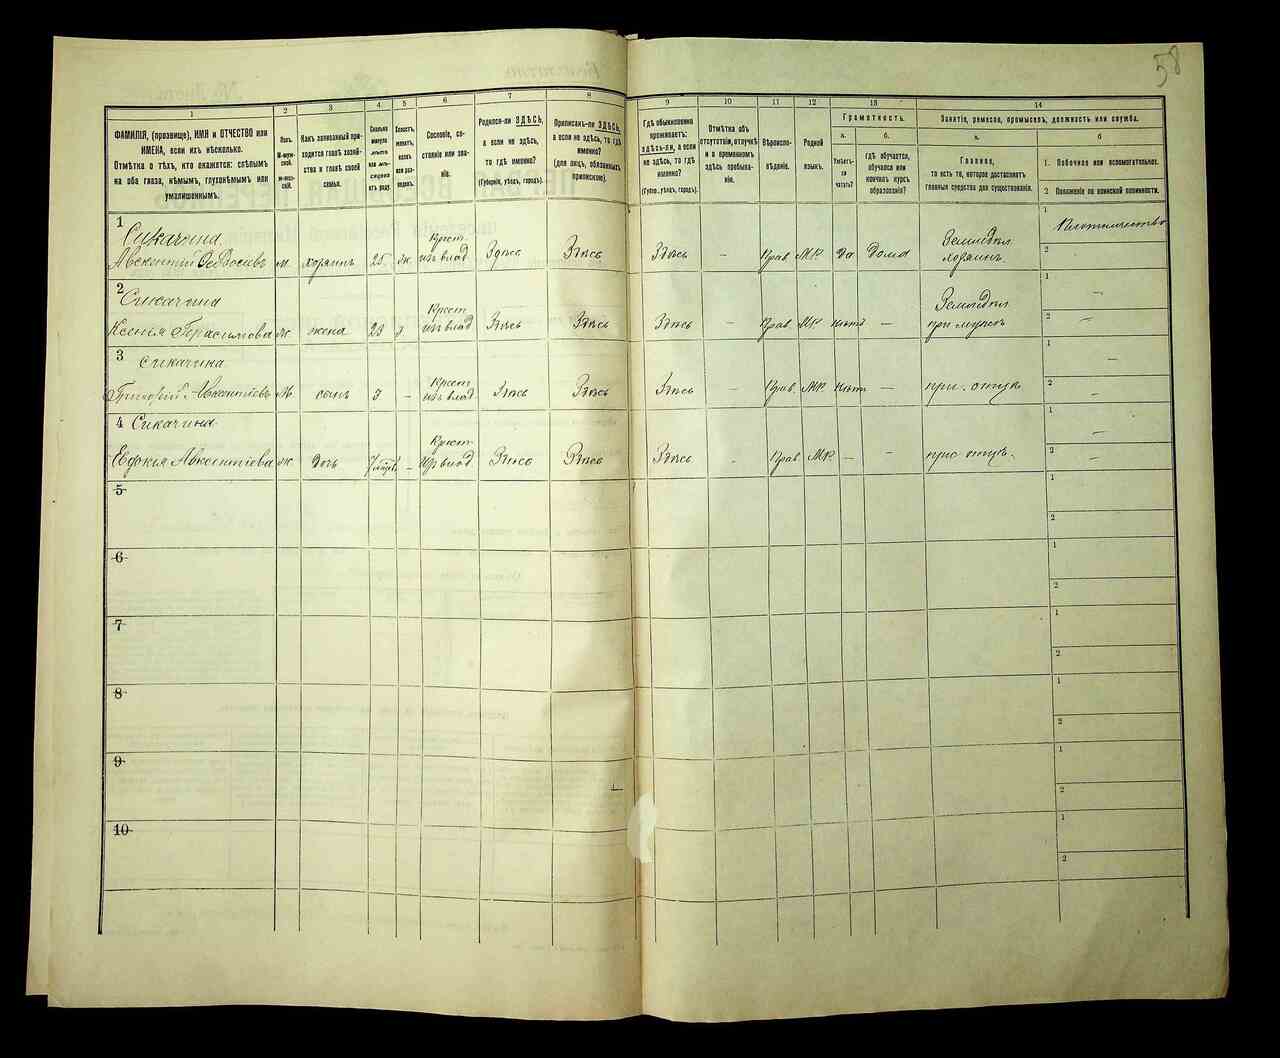 58
1
2
3
4
5
6
7
8
9
10
11
12
13
14
ФАМИЛІЯ, (прозвище), ИМЯ и ОТЧЕСТВО или
ИМЕНА, если ихъ нѣсколько.
Отмѣтка о тѣхъ, кто окажется: слѣпымъ
на оба глаза, нѣмымъ, глухонѣмымъ или
умалишеннымъ.
Полъ.
М-муж-
ской.
Ж-жен-
скій.
Какъ записанный при-
ходится главѣ хозяй-
ства и главѣ своей
семьи.
Сколько
минуло
лѣтъ
или мѣ-
сяцевъ
отъ роду.
Холостъ,
женатъ,
вдовъ
или раз-
веденъ.
Сословіе, со-
стояніе или зва-
ніе.
Родился-ли ЗДѢСЬ,
а если не здѣсь,
то гдѣ именно?
(Губернія, уѣздъ, городъ).
Приписанъ-ли ЗДѢСЬ,
а если не здѣсь, то гдѣ
именно?
(для лицъ, обязанныхъ
припискою).
Гдѣ обыкновенно
проживаетъ:
здѣсь-ли, а если
не здѣсь, то гдѣ
именно?
(Губерн., уѣздъ, городъ).
Отмѣтка объ
отсутствіи, отлучкѣ
и о временномъ
здѣсь пребыва-
ніи.
Вѣроиспо-
вѣданіе.
Родной
языкъ.
Грамотность.
а.
Умѣетъ-
ли
читать?
б.
гдѣ обучается,
обучался или
кончилъ курсъ
образованія?
Занятіе, ремесло, промыселъ, должность или служба.
а.
Главное,
то есть то, которое доставляетъ
главныя средства для существованія.
б
1. Побочное или вспомогательное.
2 Положеніе по воинской повинности.
1
Сикачина
Авксентій м. хозяинъ 25 ж. Крест. изъ влад Здѣсь Здѣсь Здѣсь – Прав МР. Да Дома Земледѣл хозяинъ.
1 Плотничество
2
2
Сикачина
Ксенія Герасимова ж жена 23 з Крест изъ влад Здѣсь Здѣсь Здѣсь – Прав. МР нѣтъ – Земледѣл при мужѣ
1 –
2 –
3
Сикачина
Григорій Авксентіевъ М. сынъ 3 – Крест изъ влад Здѣсь Здѣсь Здѣсь – Прав. МР. нѣтъ – при. отцѣ
1 –
2 –
4 Сикачина
Евфимія Авксентіева ж дочь – Крест изъ влад Здѣсь Здѣсь Здѣсь – Прав МР. – – при отцѣ.
1 –
2 –
5
1
2
6
1
2
7
1
2
8
1
2
9
1
2
10
1
2